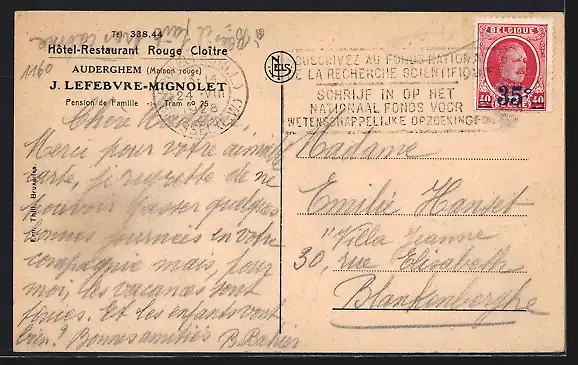 Tél. 338.44
Hôtel-Restaurant Rouge Cloître
AUDERGHEM (Maison rouge)
J. LEFEBVRE-MIGNOLET
Pension de Famille Tram nº 25
A160
Chère Madame,
Merci pour votre aimable
carte, je regrette de ne
pouvoir passer quelques
bonnes journées en votre
compagnie mais, pour
moi, les vacances sont
finies. Et les enfants vont
bien? Bonnes amitiés B. Rahier
Ern. Thill, Bruxelles
NELS
24 VIII
SOUSCRIVEZ AU FONDS NATIONAL
DE LA RECHERCHE SCIENTIFIQUE
SCHRIJF IN OP HET
NATIONAAL FONDS VOOR
WETENSCHAPPELIJKE OPZOEKINGEN
BELGIQUE
35c
40 40
Madame
Emilie Hanset
"Villa Jeanne
30, rue Elisabeth
Blankenberghe